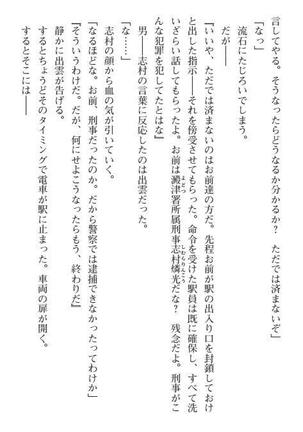 言してやる。そうなったらどうなるか分かるか? ただでは済まないぞ」
「なっ」
流石にたじろいでしまう。
だが――
『いいや、ただでは済まないのはお前達の方だ。先程お前が駅の出入り口を封鎖しておけ
と出した指示――それを傍受させてもらった。命令を受けた駅員は既に確保し、すべて洗
いざらい話してもらったよ。お前は澱津署所属刑事志村燐光だな? 残念だよ。刑事がこ
んな犯罪を犯してたとはな』
男――志村の言葉に反応したのは出雲だった。
「な……」
志村の顔から血の気が引いていく。
「なるほどな。お前、刑事だったのか。だから警察では逮捕できなかったってわけか」
『そういうわけだ。だが、何にせよこうなったらもう、終わりだ』
静かに出雲が告げる。
するとちょうどそのタイミングで電車が駅に止まった。車両の扉が開く。
するとそこには――